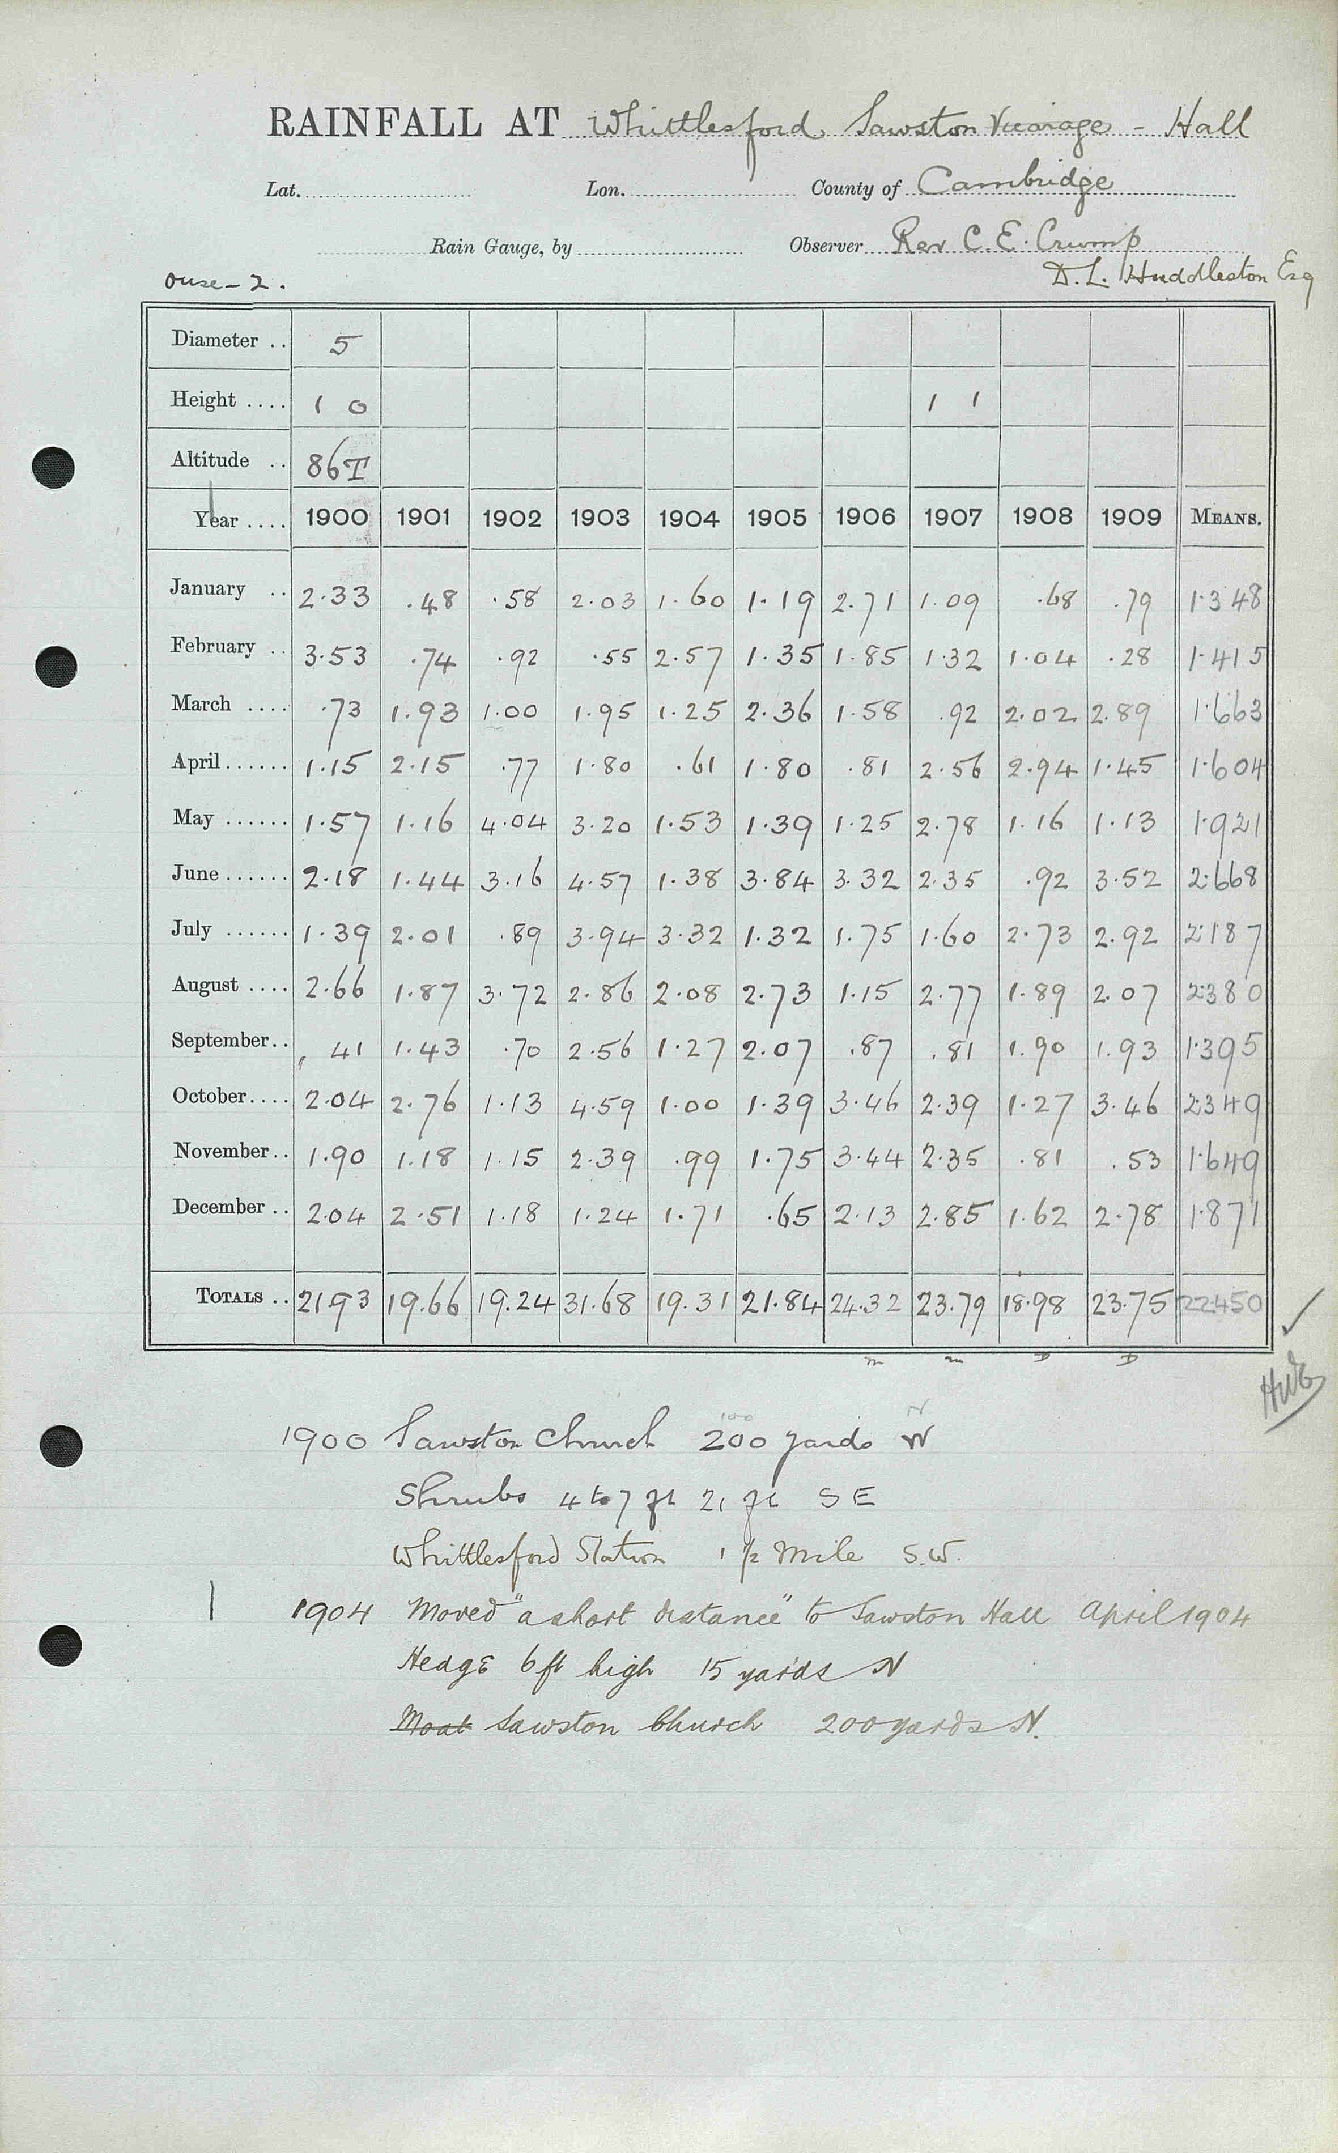 RAINFALL AT Whittlesford Sawston Vicarage - Hall
Lat. Lon. County of Cambridge
Rain Gauge, by Observer Rev C. E. Crump
Ouse - 2. D. L. Huddleston Esq
Diameter .. 5
Height .... 1 0 1 1
Altitude .. 86T
Year .... 1900 1901 1902 1903 1904 1905 1906 1907 1908 1909 MEANS.
January .. 2.33 .48 .58 2.03 1.60 1.19 2.71 1.09 .68 .79 1.348
February .. 3.53 .74 .92 .55 2.57 1.35 1.85 1.32 1.04 .28 1.415
March .... .73 1.93 1.00 1.95 1.25 2.36 1.58 .92 2.02 2.89 1.663
April ...... 1.15 2.15 .77 1.80 .61 1.80 .81 2.56 2.94 1.45 1.604
May ...... 1.57 1.16 4.04 3.20 1.53 1.39 1.25 2.78 1.16 1.13 1.921
June ...... 2.18 1.44 3.16 4.57 1.38 3.84 3.32 2.35 .92 3.52 2.668
July ...... 1.39 2.01 .89 3.94 3.32 1.32 1.75 1.60 2.73 2.92 2.187
August .... 2.66 1.87 3.72 2.86 2.08 2.73 1.15 2.77 1.89 2.07 2.380
September .. .41 1.43 .70 2.56 1.27 2.07 .87 .81 1.90 1.93 1.395
October .... 2.04 2.76 1.13 4.59 1.00 1.39 3.46 2.39 1.27 3.46 2.349
November .. 1.90 1.18 1.15 2.39 .99 1.75 3.44 2.35 .81 .53 1.649
December .. 2.04 2.51 1.18 1.24 1.71 .65 2.13 2.85 1.62 2.78 1.871
TOTALS .. 21.93 19.66 19.24 31.68 19.31 21.84 24.32 23.79 18.98 23.75 22.450
m m D D
100 N
1900 Sawston Church 200 yards W
Shrubs 4 to 7 ft 21 ft S E
Whittlesford Station 1 1/2 Mile S.W.
1904 Moved "a short distance" to Sawston Hall April 1904
Hedge 6 ft high 15 yards N
Moat Sawston Church 200 yards N.